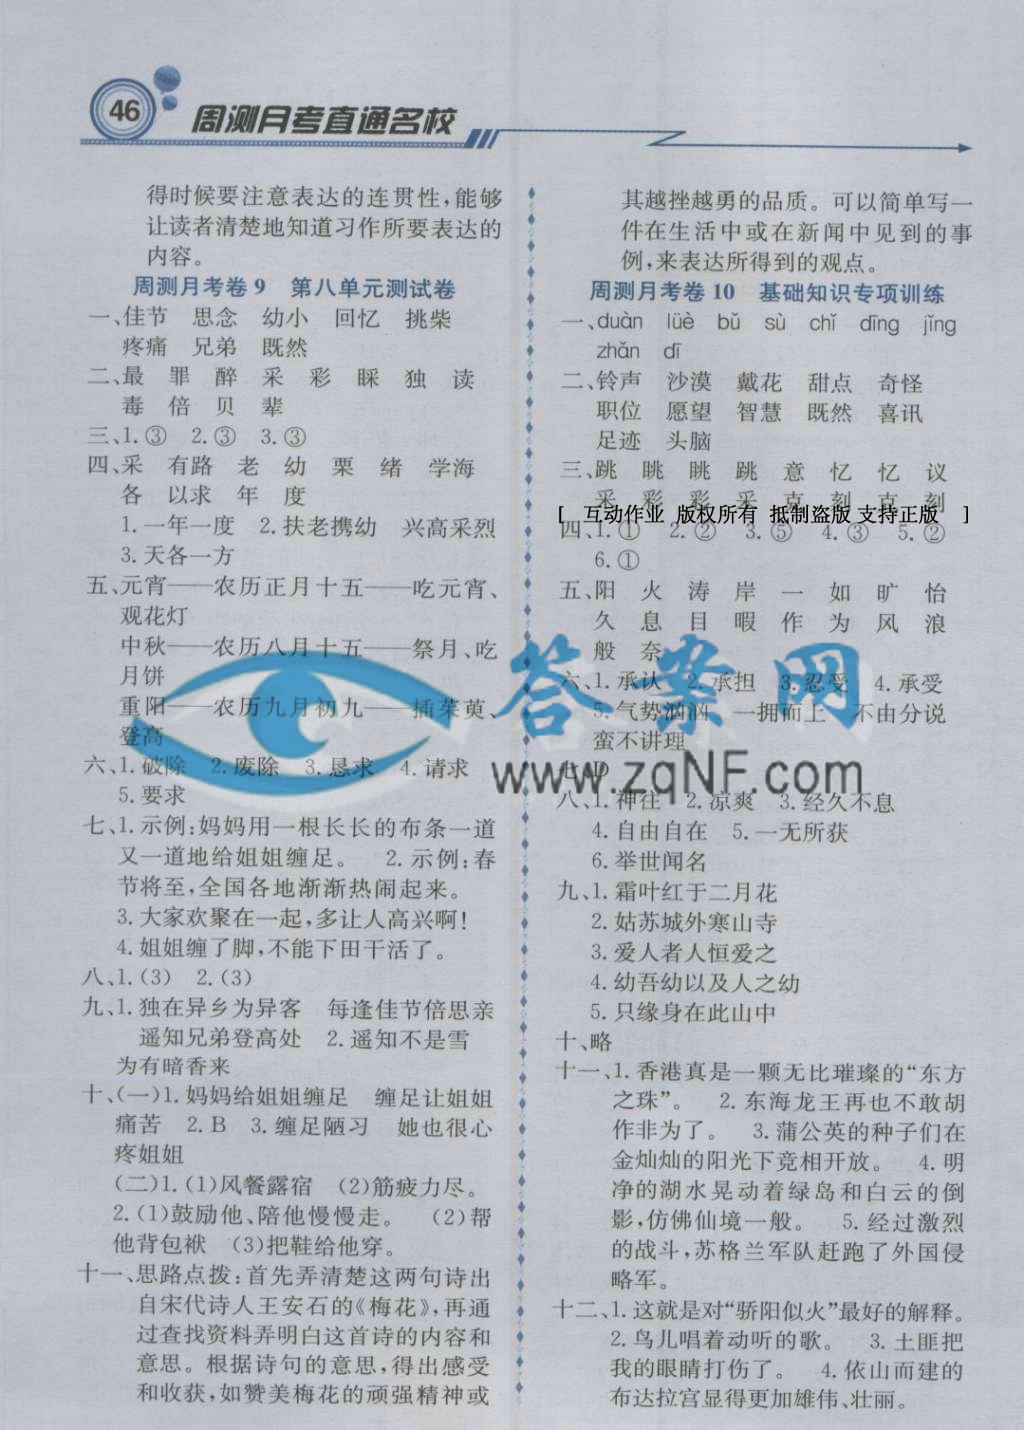 46
周测月考直通名校
得时候要注意表达的连贯性,能够
让读者清楚地知道习作所要表达的
内容。
周测月考卷9 第八单元测试卷
一、佳节 思念 幼小 回忆 挑柴
疼痛 兄弟 既然
二、最 罪 醉 采 彩 睬 独 读
毒 倍 贝 辈
三、1.③ 2.③ 3.③
四、采 有路 老 幼 栗 绪 学海
各 以求 年 度
1.一年一度 2.扶老携幼 兴高采烈
3.天各一方
五、元宵——农历正月十五——吃元宵、
观花灯
中秋——农历八月十五——祭月、吃
月饼
重阳——农历九月初九——插茱萸、
登高
六、1.破除 2.废除 3.恳求 4.请求
5.要求
七、1.示例:妈妈用一根长长的布条一道
又一道地给姐姐缠足。 2.示例:春
节将至,全国各地渐渐热闹起来。
3.大家欢聚在一起,多让人高兴啊!
4.姐姐缠了脚,不能下田干活了。
八、1.(3) 2.(3)
九、1.独在异乡为异客 每逢佳节倍思亲
遥知兄弟登高处 2.遥知不是雪
为有暗香来
十、(一)1.妈妈给姐姐缠足 缠足让姐姐
痛苦 2.B 3.缠足陋习 她也很心
疼姐姐
(二)1.(1)风餐露宿 (2)筋疲力尽。
2.(1)鼓励他、陪他慢慢走。 (2)帮
他背包袱 (3)把鞋给他穿。
十一、思路点拨:首先弄清楚这两句诗出
自宋代诗人王安石的《梅花》,再通
过查找资料弄明白这首诗的内容和
意思。根据诗句的意思,得出感受
和收获,如赞美梅花的顽强精神或
其越挫越勇的品质。可以简单写一
件在生活中或在新闻中见到的事
例,来表达所得到的观点。
周测月考卷10 基础知识专项训练
一、duàn lüè bǔ sù chǐ dīng jǐng
zhǎn dī
二、铃声 沙漠 戴花 甜点 奇怪
职位 愿望 智慧 既然 喜讯
足迹 头脑
三、跳 眺 眺 跳 意 忆 忆 议
采 彩 彩 采 克 刻 克 刻
[ 互动作业 版权所有 抵制盗版 支持正版 ]
四、1.① 2.② 3.⑤ 4.③ 5.②
6.①
五、阳 火 涛 岸 一 如 旷 怡
久 息 目 暇 作 为 风 浪
般 奈
六、1.承认 2.承担 3.忍受 4.承受
5.气势汹汹 一拥而上 不由分说
蛮不讲理
七、D
八、1.神往 2.凉爽 3.经久不息
4.自由自在 5.一无所获
6.举世闻名
九、1.霜叶红于二月花
2.姑苏城外寒山寺
3.爱人者人恒爱之
4.幼吾幼以及人之幼
5.只缘身在此山中
十、略
十一、1.香港真是一颗无比璀璨的“东方
之珠”。 2.东海龙王再也不敢胡
作非为了。 3.蒲公英的种子们在
金灿灿的阳光下竞相开放。 4.明
净的湖水晃动着绿岛和白云的倒
影,仿佛仙境一般。 5.经过激烈
的战斗,苏格兰军队赶跑了外国侵
略军。
十二、1.这就是对“骄阳似火”最好的解释。
2.鸟儿唱着动听的歌。 3.土匪把
我的眼睛打伤了。 4.依山而建的
布达拉宫显得更加雄伟、壮丽。
答案网
www.zqNF.com